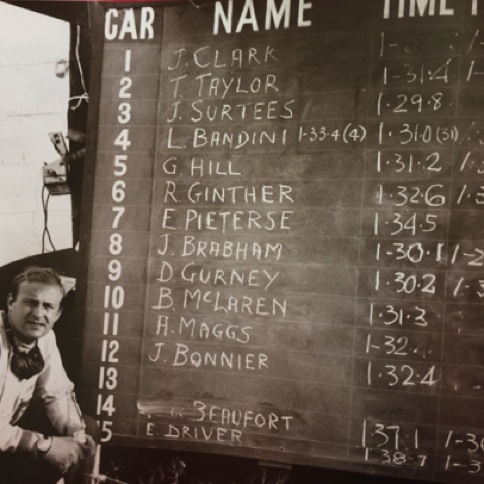 CAR NAME TIME
1 J. CLARK
2 T. TAYLOR 1-31.4
3 J. SURTEES 1.29.8.
4 L. BANDINI 1.33.4(4) 1.31.0(31)
5 G. HILL 1.31.2
6 R. GINTHER 1.32.6
7 E. PIETERSE 1.34.5
8 J. BRABHAM 1-30.1
9 D. GURNEY 1.30.2
10 B. McLAREN 1.31.3
11 A. MAGGS 1-32..
12 J. BONNIER 1.32.4
13
14 BEAUFORT 1.37.1
5 E. DRIVER 1.38.7